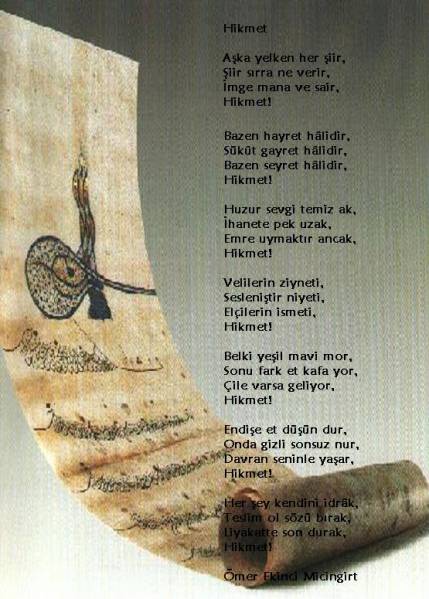 Hikmet

Aşka yelken her şiir,
Şiir sırra ne verir,
İmge mana ve sair,
Hikmet!

Bazen hayret hâlidir,
Sükût gayret hâlidir,
Bazen seyret hâlidir,
Hikmet!

Huzur sevgi temiz ak,
İhanete pek uzak,
Emre uymaktır ancak,
Hikmet!

Velilerin ziyneti,
Sesleniştir niyeti,
Elçilerin ismeti,
Hikmet!

Belki yeşil mavi mor,
Sonu fark et kafa yor,
Çile varsa geliyor,
Hikmet!

Endişe et düşün dur,
Onda gizli sonsuz nur,
Davran seninle yaşar,
Hikmet!

Her şey kendini idrâk,
Teslim ol sözü bırak,
Liyakatte son durak,
Hikmet!

Ömer Ekinci Micingirt